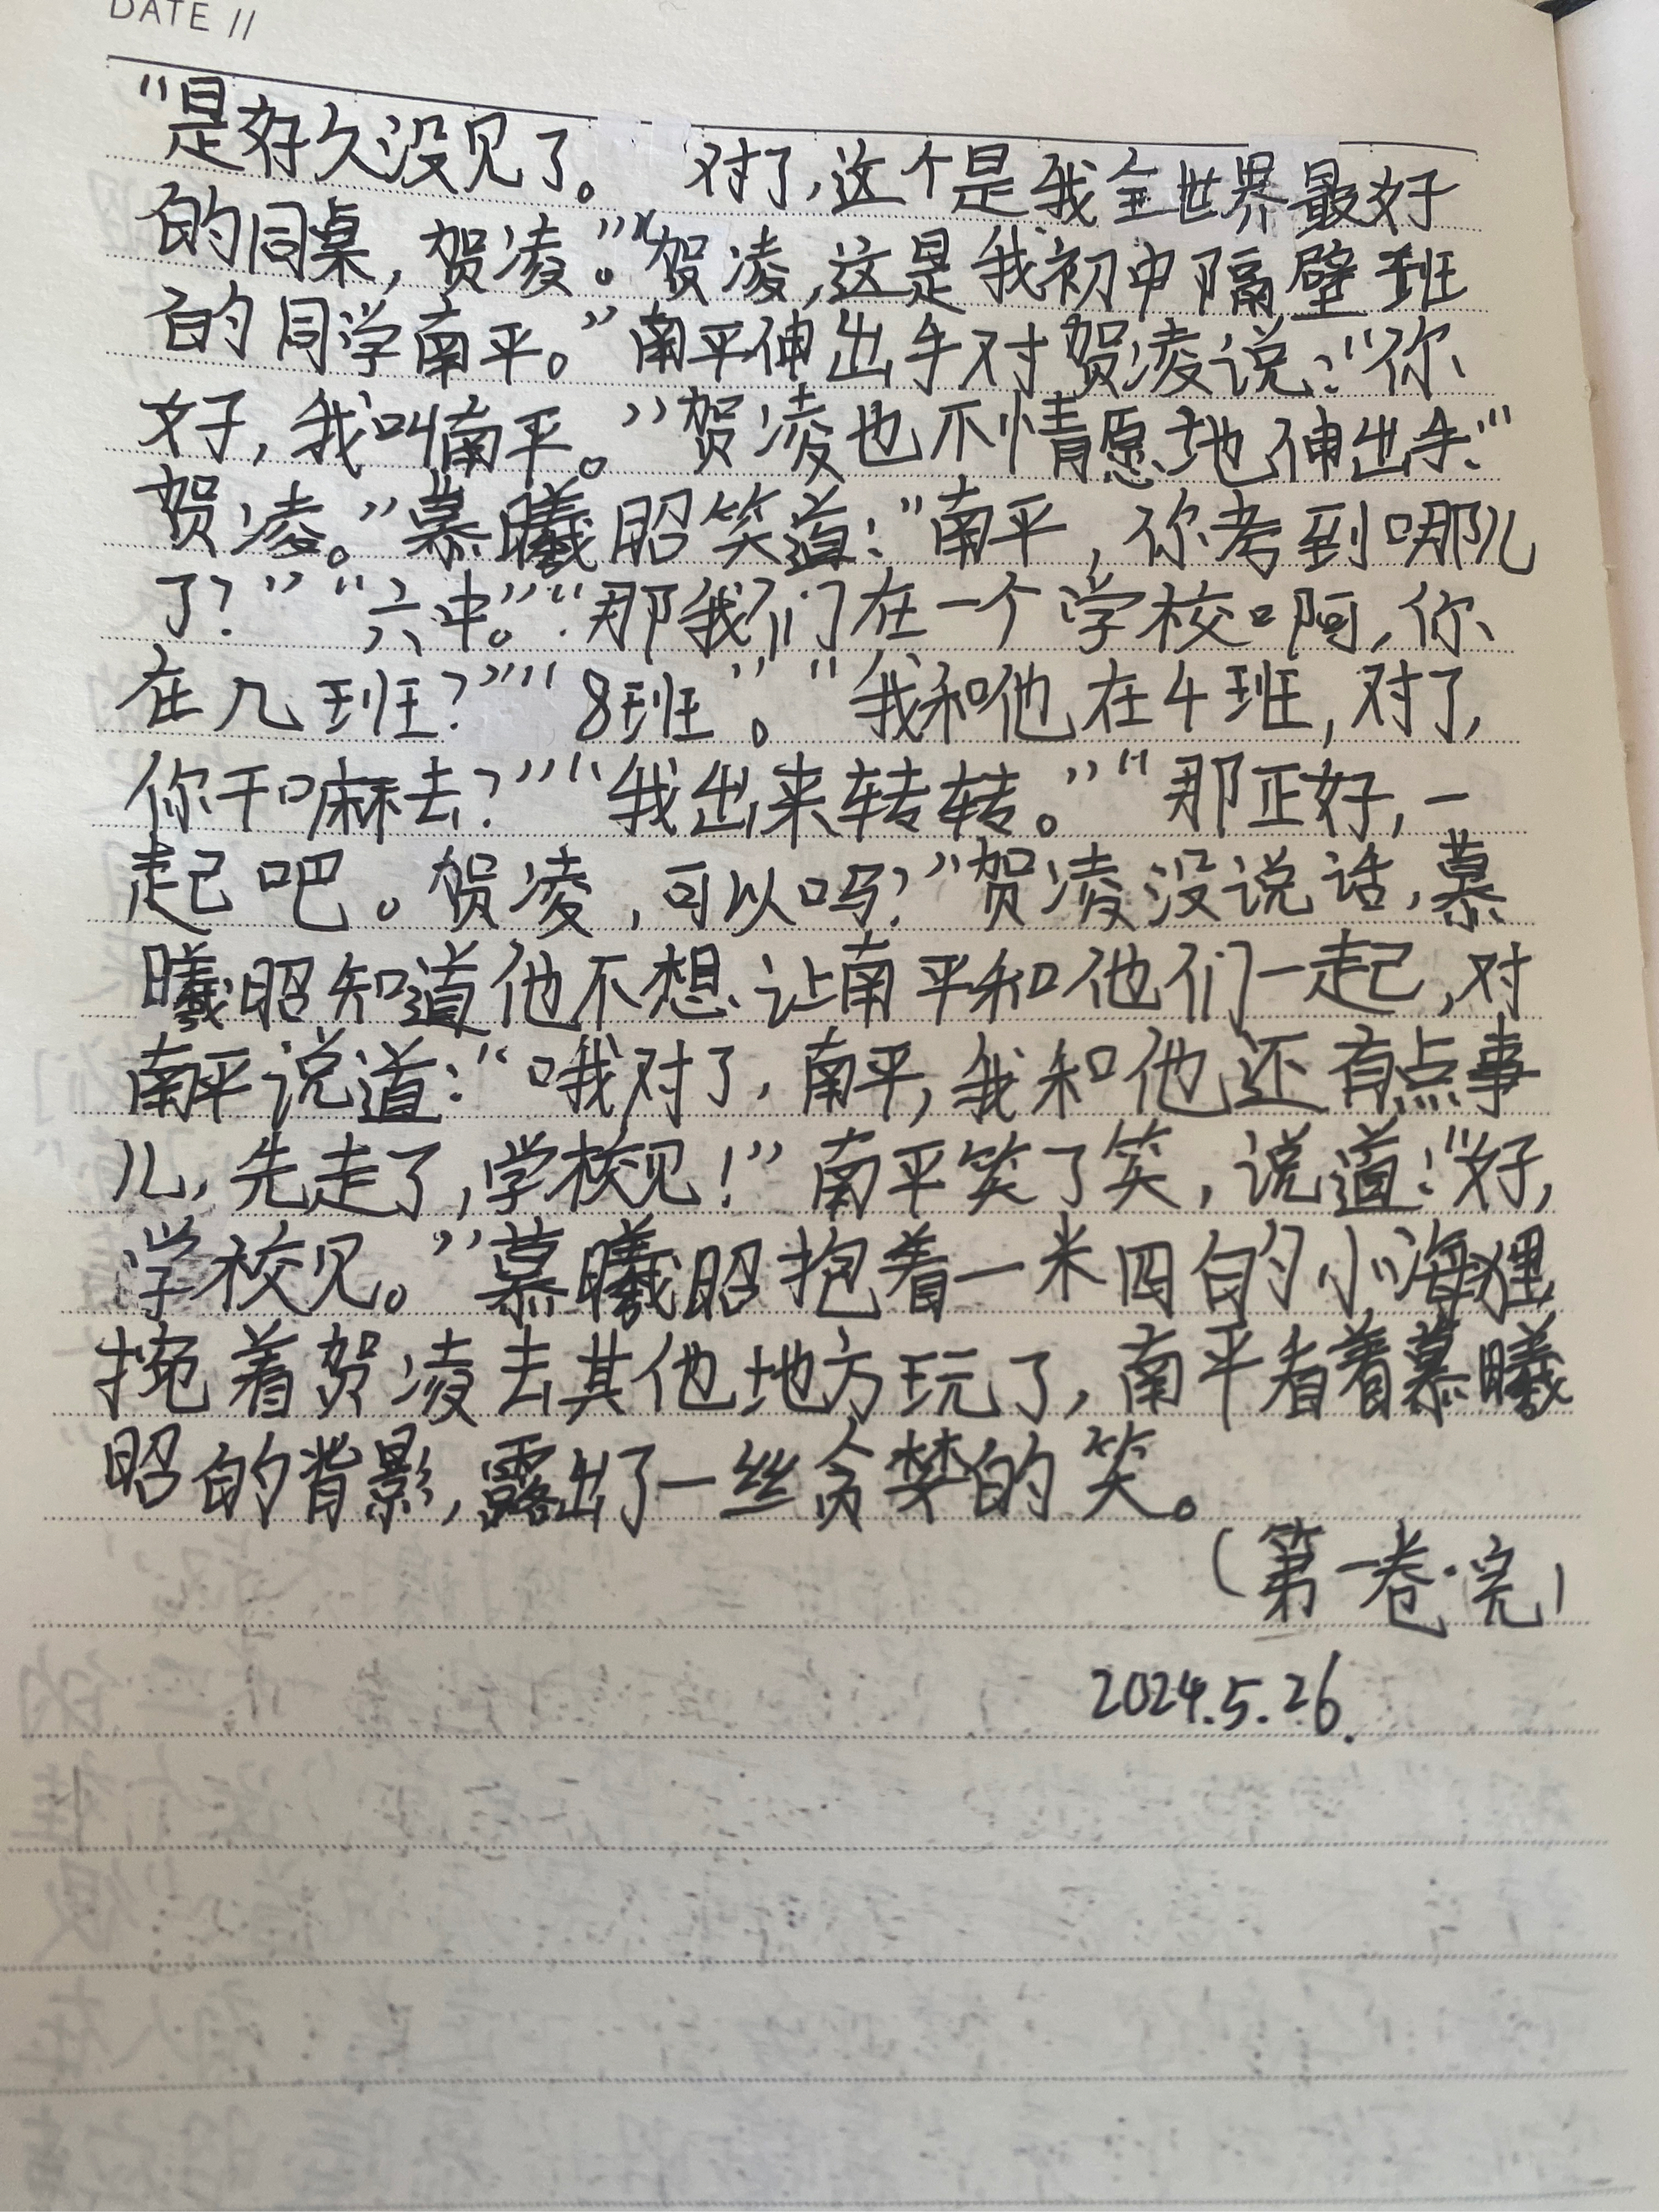 DATE //
“是好久没见了。 对了,这个是我全世界最好
的同桌,贺凌。”“贺凌,这是我初中隔壁班
的同学南平。”南平伸出手对贺凌说:“你
好,我叫南平。”贺凌也不情愿地伸出手:“
贺凌。”慕曦昭笑道:“南平,你考到哪儿
了?”“六中。”“那我们在一个学校啊,你
在几班?”“8班”。“我和他在4班,对了,
你干嘛去?”“我出来转转。”“那正好,一
起吧。贺凌,可以吗?”贺凌没说话,慕
曦昭知道他不想让南平和他们一起,对
南平说道:“哦对了,南平,我和他还有点事
儿,先走了,学校见!”南平笑了笑,说道:“好,
学校见。”慕曦昭抱着一米四的小海狸
挽着贺凌去其他地方玩了,南平看着慕曦
昭的背影,露出了一丝贪婪的笑。
(第一卷·完)
2024.5.26.